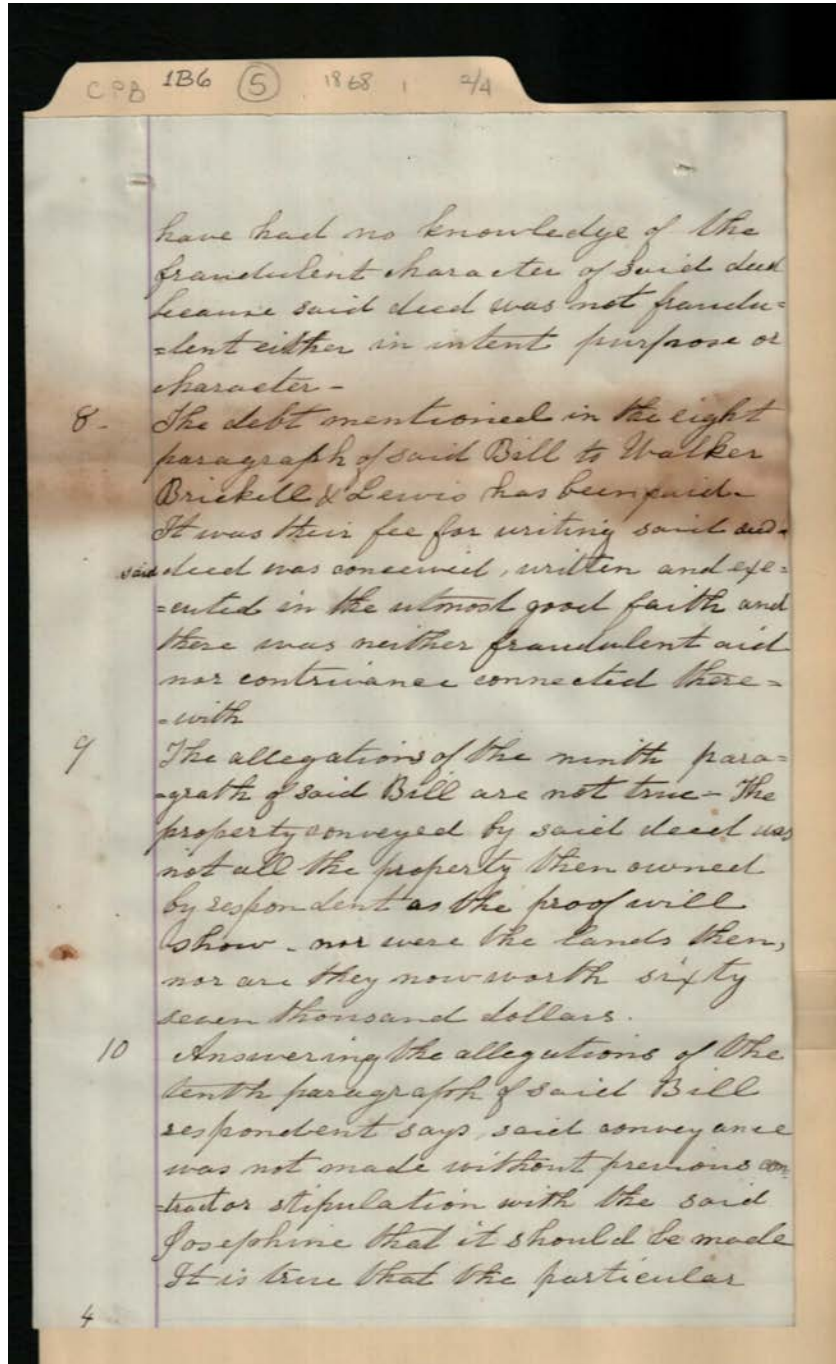 CPB 1B6 5 1868 1 2/4
have had no knowledge of the
fraudulent character of said deed
because said deed was not fraudu=
=lent either in intent purpose or
character -
8 - The debt mentioned in the eight
paragraph of said Bill to Walker
Brickell & Lewis has been paid -
It was their fee for writing said deed -
said deed was conceived, written and exe=
=cuted in the utmost good faith and
there was neither fraudulent aid
nor contrivance connected there=
=with
9 The allegations of the ninth para=
=grath of said Bill are not true - The
property conveyed by said deed was
not all the property then owned
by respondent as the proof will
show - nor were the lands then,
nor are they now worth sixty
seven thousand dollars.
10 Answering the allegations of the
tenth paragraph of said Bill
respondent says, said conveyance
was not made without previous con
=tract or stipulation with the said
Josephine that it should be made
It is true that the particular
4